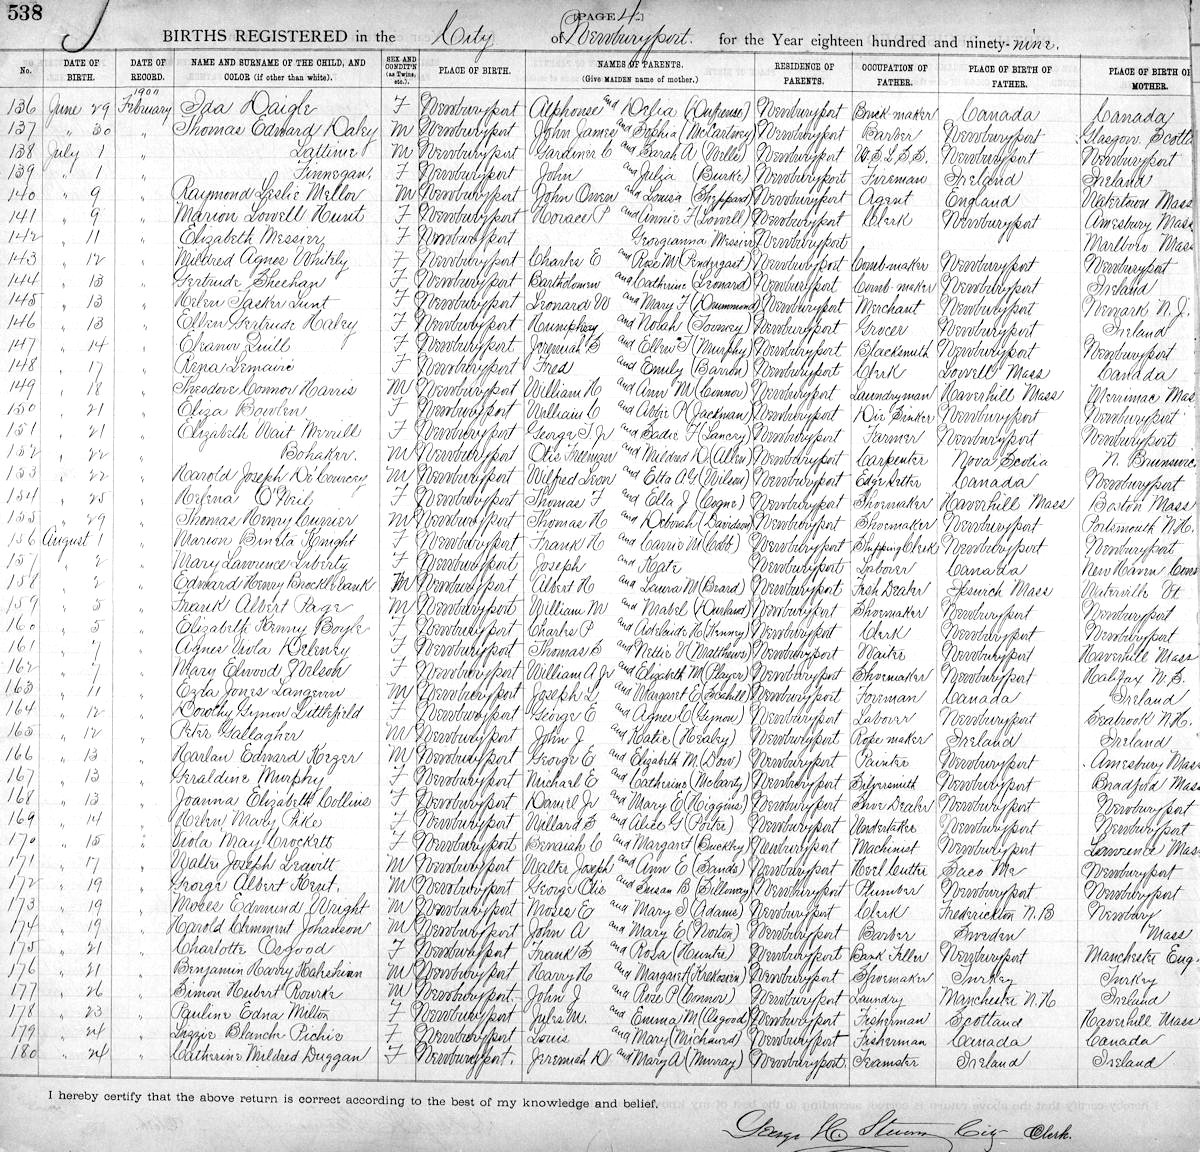 538
[PAGE 4.]
BIRTHS REGISTERED in the City of Newburyport. for the Year eighteen hundred and ninety-nine.
No. DATE OF BIRTH. DATE OF RECORD. NAME AND SURNAME OF THE CHILD, AND COLOR (if other than white). SEX AND CONDIT'N (as Twins, etc.). PLACE OF BIRTH. NAMES OF PARENTS. (Give MAIDEN name of mother.) RESIDENCE OF PARENTS. OCCUPATION OF FATHER. PLACE OF BIRTH OF FATHER. PLACE OF BIRTH OF MOTHER.
1900
136 June 29 February Ida Daigle F Newburyport Alphonse and Delia Newburyport Brick-maker Canada Canada
137 " 30 " Thomas Edward Daley M Newburyport John James and Sophia (McCartney) Newburyport Barber Newburyport Glasgow Scotl
138 July 1 " Lattime M Newburyport Gardiner C and Sarah A (Wells) Newburyport Newburyport Newburyport
139 " 1 " Finnegan. F Newburyport John and Julia (Burke) Newburyport Fireman Ireland Ireland
140 " 9 " Raymond Leslie Mellor M Newburyport John Owen and Louisa (Sheppard) Newburyport Agent England Watertown Mass
141 " 9 " Marion Lowell Hunt F Newburyport Horace P and Annie F (Lowell) Newburyport Clerk Newburyport Amesbury Mass
142 " 11 " Elizabeth Messier F Newburyport Georgianna Messier Newburyport Marlboro Mass
143 " 12 " Mildred Agnes Whitely F Newburyport Charles E and Rose M (Pendergast) Newburyport Comb-maker Newburyport Newburyport
144 " 13 " Gertrude Sheehan F Newburyport Bartholomew and Catherine (Leonard) Newburyport Comb-maker Newburyport Ireland
145 " 13 " Helen Tasker Lunt F Newburyport Leonard W and Mary F (Drummond) Newburyport Merchant Newburyport Newark N. J.
146 " 13 " Ellen Gertrude Haley F Newburyport Humphrey and Norah (Toomey) Newburyport Grocer Newburyport Ireland
147 " 14 " Eleanor Quill F Newburyport Jeremiah S and Ellen T (Murphy) Newburyport Blacksmith Newburyport Newburyport
148 " 17 " Rena Lemaire F Newburyport Fred and Emily (Barron) Newburyport Clerk Lowell Mass Canada
149 " 18 " Theodore Connor Harris M Newburyport William H and Ann M (Connor) Newburyport Laundryman Haverhill Mass Merrimac Mas
150 " 21 " Eliza Bowlen F Newburyport William C and Abbie P (Jackman) Newburyport Die Sinker Newburyport Newburyport
151 " 21 " Elizabeth Nait Merrill F Newburyport George T Jr and Sadie F (Lancey) Newburyport Farmer Newburyport Newburyport
152 " 22 " Bohaker. M Newburyport Otis Freeman and Mildred D (Allen) Newburyport Carpenter Nova Scotia N. Brunswic
153 " 22 " Harold Joseph De Courcey M Newburyport Wilfred Leon and Etta A G (Wilson) Newburyport Edge Setter Canada Newburyport
154 " 25 " Helena O'Neil F Newburyport Thomas F and Ella J (Coyne) Newburyport Shoemaker Haverhill Mass Boston Mass
155 " 29 " Thomas Henry Currier M Newburyport Thomas H and Deborah (Davidson) Newburyport Shoemaker Newburyport Portsmouth N.H.
156 August 1 " Marion Bineta Knight F Newburyport Frank H and Carrie M (Cobb) Newburyport Shipping Clerk Newburyport Newburyport
157 " 2 " Mary Lawrence Liberty F Newburyport Joseph and Kate Newburyport Laborer Canada New Haven Conn
158 " 2 " Edward Henry Brocklebank M Newburyport Albert H and Laura M (Beard) Newburyport Fish Dealer Ipswich Mass Waterville Vt
159 " 5 " Frank Albert Page M Newburyport William M and Mabel (Hurland) Newburyport Shoemaker Newburyport Newburyport
160 " 5 " Elizabeth Kenney Boyle F Newburyport Charles P and Adelaide H (Kenney) Newburyport Clerk Newburyport Newburyport
161 " 7 " Agnes Viola Delaney F Newburyport Thomas E and Nettie V (Matthews) Newburyport Waiter Newburyport Haverhill Mass
162 " 7 " Mary Elwood Nelson F Newburyport William A Jr and Elizabeth M (Player) Newburyport Shoemaker Newburyport Halifax N.S.
163 " 11 " Ezra Jones Langevin M Newburyport Joseph L and Margaret E (Scahill) Newburyport Foreman Canada Ireland
164 " 12 " Dorothy Gynon Littlefield F Newburyport George E and Agnes C (Gynon) Newburyport Laborer Newburyport Seabrook N.H.
165 " 12 " Peter Gallagher M Newburyport John J and Katie (Healey) Newburyport Rope maker Ireland Ireland
166 " 13 " Harlan Edward Kezer M Newburyport George E and Elizabeth M. (Dow) Newburyport Painter Newburyport Amesbury Mass
167 " 13 " Geraldine Murphy F Newburyport Michael E and Catherine (McCarty) Newburyport Silversmith Newburyport Bradford Mass
168 " 13 " Joanna Elizabeth Collins F Newburyport Daniel Jr and Mary E (Higgins) Newburyport Shoe Dealer Newburyport Newburyport
169 " 14 " Helen Mary Pike F Newburyport Willard S and Alice G (Porter) Newburyport Undertaker Newburyport Newburyport
170 " 15 " Viola May Crockett F Newburyport Benaiah C and Margaret (Buckley) Newburyport Machinist Newburyport Lawrence Mas
171 " 17 " Walter Joseph Leavitt M Newburyport Walter Joseph and Ann E (Sands) Newburyport Heel Cutter Saco Me Newburyport
172 " 19 " George Albert Kent. M Newburyport George Otis and Susan B (Belloway) Newburyport Plumber Newburyport Newburyport
173 " 19 " Moses Edmund Wright M Newburyport Moses E and Mary J (Adams) Newburyport Clerk Frederickton N.B Newbury
174 " 19 " Harold Clement Johanson M Newburyport John A and Mary E (Norton) Newburyport Barber Sweden Mass
175 " 21 " Charlotte Osgood F Newburyport Frank S and Rosa (Hunter) Newburyport Bank Teller Newburyport Manchester Eng.
176 " 21 " Benjamin Harry Kaheshian M Newburyport Harry H and Margaret (Krekosian) Newburyport Shoemaker Turkey Turkey
177 " 26 " Simon Hubert Rourke M Newburyport. John J and Rose P (Connor) Newburyport Laundry Manchester N.H Ireland
178 " 23 " Pauline Edna Milton F Newburyport Jules M. and Emma M (Osgood) Newburyport Fisherman Scotland Haverhill Mass
179 " 24 " Lizzie Blanche Pichie F Newburyport Louis and Mary (Michaud) Newburyport Fisherman Canada Canada
180 " 24 " Catherine Mildred Duggan F Newburyport. Jeremiah D and Mary A (Murray) Newburyport. Teamster Ireland Ireland
I hereby certify that the above return is correct according to the best of my knowledge and belief.
George H. Stevens City Clerk.